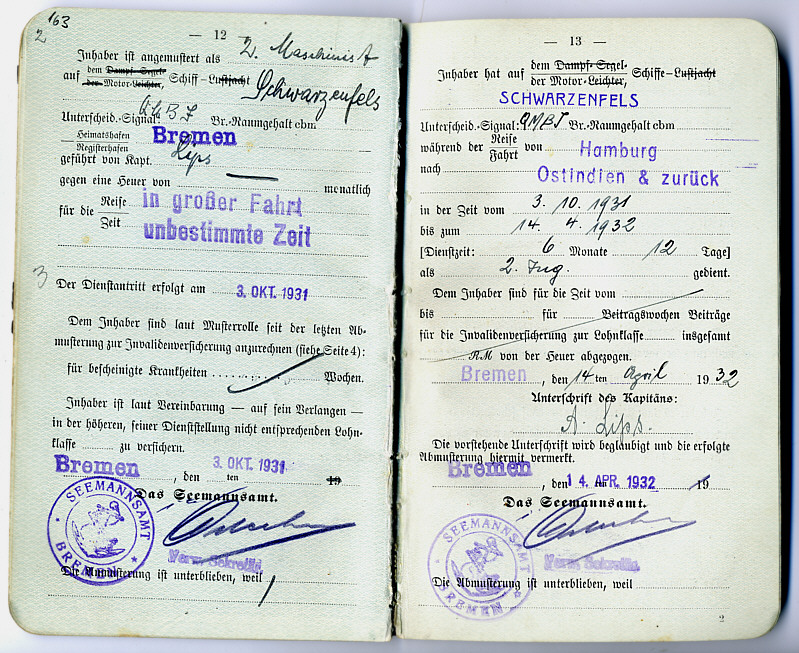 163
2
— 12 —
Inhaber ist angemustert als 2. Maschinist
auf dem Dampf-Segel- der Motor-Leichter, Schiff-Lustjacht Schwarzenfels
Unterscheid.-Signal: QMBJ Br.-Raumgehalt cbm
Heimatshafen
Registerhafen Bremen
geführt von Kapt. Lips
gegen eine Heuer von — monatlich
für die Reise Zeit in großer Fahrt
unbestimmte Zeit
3
Der Dienstantritt erfolgt am 3. OKT. 1931
Dem Inhaber sind laut Musterrolle seit der letzten Ab-
musterung zur Invalidenversicherung anzurechnen (siehe Seite 4):
für bescheinigte Krankheiten .......... Wochen.
Inhaber ist laut Vereinbarung — auf sein Verlangen —
in der höheren, seiner Dienststellung nicht entsprechenden Lohn-
klasse ........ zu versichern.
Bremen, den 3. OKT. 1931 ten 19
Das Seemannsamt.
SEEMANNSAMT BREMEN
Verw. Sekretär.
Die Abmusterung ist unterblieben, weil
— 13 —
Inhaber hat auf dem Dampf-Segel- der Motor-Leichter, Schiffe-Lustjacht
SCHWARZENFELS
Unterscheid.-Signal: QMBJ Br.-Raumgehalt cbm
während der Reise Fahrt von Hamburg
nach Ostindien & zurück
in der Zeit vom 3. 10. 1931
bis zum 14. 4. 1932
[Dienstzeit: 6 Monate 12 Tage]
als 2. Ing. gedient.
Dem Inhaber sind für die Zeit vom
bis ........ für ........ Beitragswochen Beiträge
für die Invalidenversicherung zu Lohnklasse ........ insgesamt
RM von der Heuer abgezogen.
Bremen, den 14 ten April 1932
Unterschrift des Kapitäns:
A. Lips.
Die vorstehende Unterschrift wird beglaubigt und die erfolgte
Abmusterung hiermit vermerkt.
Bremen, den 14. APR. 1932 19
Das Seemannsamt.
SEEMANNSAMT BREMEN
Verw. Sekretär.
Die Abmusterung ist unterblieben, weil
2